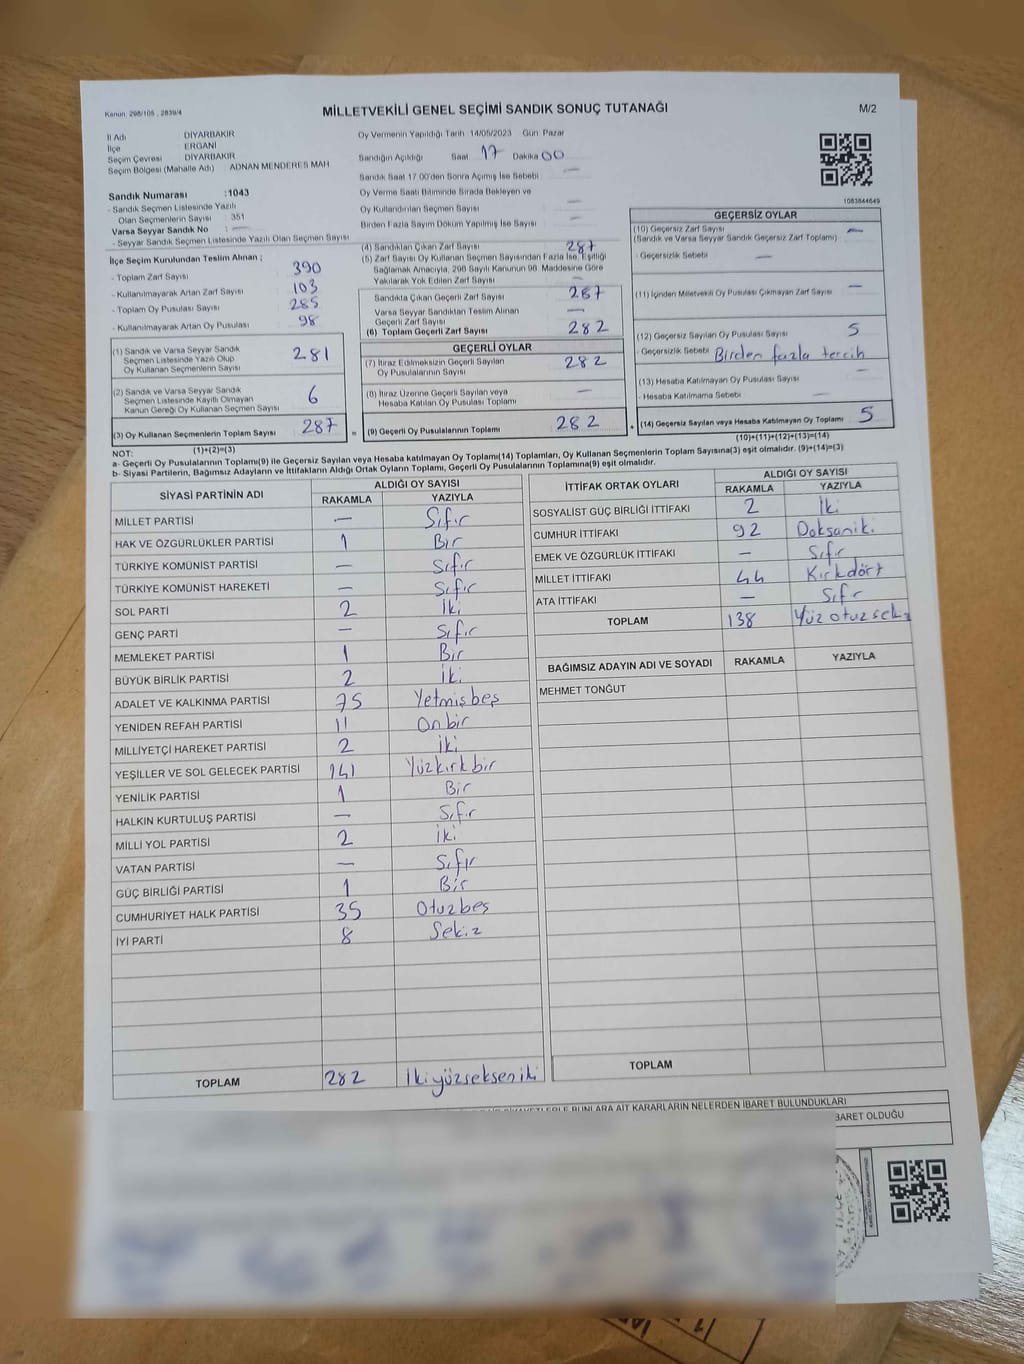 Kanun: 298/105 , 2839/4
MİLLETVEKİLİ GENEL SEÇİMİ SANDIK SONUÇ TUTANAĞI
M/2
İl Adı DİYARBAKIR
İlçe ERGANİ
Seçim Çevresi DİYARBAKIR
Seçim Bölgesi (Mahalle Adı) : ADNAN MENDERES MAH
Sandık Numarası : 1043
- Sandık Seçmen Listesinde Yazılı
Olan Seçmenlerin Sayısı : 351
Varsa Seyyar Sandık No : —
- Seyyar Sandık Seçmen Listesinde Yazılı Olan Seçmen Sayısı
İlçe Seçim Kurulundan Teslim Alınan ;
- Toplam Zarf Sayısı 390
- Kullanılmayarak Artan Zarf Sayısı 103
- Toplam Oy Pusulası Sayısı 285
- Kullanılmayarak Artan Oy Pusulası 98
(1) Sandık ve Varsa Seyyar Sandık
Seçmen Listesinde Yazılı Olup
Oy Kullanan Seçmenlerin Sayısı 281
(2) Sandık ve Varsa Seyyar Sandık
Seçmen Listesinde Kayıtlı Olmayan
Kanun Gereği Oy Kullanan Seçmen Sayısı 6
(3) Oy Kullanan Seçmenlerin Toplam Sayısı 287
(1)+(2)=(3)
Oy Vermenin Yapıldığı Tarih 14/05/2023 Gün Pazar
Sandığın Açıldığı Saat 17 Dakika 00
Sandık Saat 17.00'den Sonra Açılmış İse Sebebi —
Oy Verme Saati Bitiminde Sırada Bekleyen ve
Oy Kullandırılan Seçmen Sayısı —
Birden Fazla Sayım Döküm Yapılmış İse Sayısı —
(4) Sandıktan Çıkan Zarf Sayısı 287
(5) Zarf Sayısı Oy Kullanan Seçmen Sayısından Fazla İse, Eşitliği
Sağlamak Amacıyla, 298 Sayılı Kanunun 98. Maddesine Göre
Yakılarak Yok Edilen Zarf Sayısı —
Sandıkta Çıkan Geçerli Zarf Sayısı 287
Varsa Seyyar Sandıktan Teslim Alınan
Geçerli Zarf Sayısı —
(6) Toplam Geçerli Zarf Sayısı 282
GEÇERLİ OYLAR
(7) İtiraz Edilmeksizin Geçerli Sayılan
Oy Pusulalarının Sayısı 282
(8) İtiraz Üzerine Geçerli Sayılan veya
Hesaba Katılan Oy Pusulası Toplamı —
= (9) Geçerli Oy Pusulalarının Toplamı 282
1083844649
GEÇERSİZ OYLAR
(10) Geçersiz Zarf Sayısı —
(Sandık ve Varsa Seyyar Sandık Geçersiz Zarf Toplamı)
- Geçersizlik Sebebi —
(11) İçinden Milletvekili Oy Pusulası Çıkmayan Zarf Sayısı —
(12) Geçersiz Sayılan Oy Pusulası Sayısı 5
- Geçersizlik Sebebi Birden fazla tercih
(13) Hesaba Katılmayan Oy Pusulası Sayısı —
- Hesaba Katılmama Sebebi —
+ (14) Geçersiz Sayılan veya Hesaba Katılmayan Oy Toplamı 5
(10)+(11)+(12)+(13)=(14)
NOT:
a- Geçerli Oy Pusulalarının Toplamı(9) ile Geçersiz Sayılan veya Hesaba katılmayan Oy Toplamı(14) Toplamları, Oy Kullanan Seçmenlerin Toplam Sayısına(3) eşit olmalıdır. (9)+(14)=(3)
b- Siyasi Partilerin, Bağımsız Adayların ve İttifakların Aldığı Ortak Oyların Toplamı, Geçerli Oy Pusulalarının Toplamına(9) eşit olmalıdır.
SİYASİ PARTİNİN ADI ALDIĞI OY SAYISI
RAKAMLA YAZIYLA
MİLLET PARTİSİ — Sıfır
HAK VE ÖZGÜRLÜKLER PARTİSİ 1 Bir
TÜRKİYE KOMÜNİST PARTİSİ — Sıfır
TÜRKİYE KOMÜNİST HAREKETİ — Sıfır
SOL PARTİ 2 İki
GENÇ PARTİ — Sıfır
MEMLEKET PARTİSİ 1 Bir
BÜYÜK BİRLİK PARTİSİ 2 İki
ADALET VE KALKINMA PARTİSİ 75 Yetmişbeş
YENİDEN REFAH PARTİSİ 11 Onbir
MİLLİYETÇİ HAREKET PARTİSİ 2 İki
YEŞİLLER VE SOL GELECEK PARTİSİ 141 Yüzkırkbir
YENİLİK PARTİSİ 1 Bir
HALKIN KURTULUŞ PARTİSİ — Sıfır
MİLLİ YOL PARTİSİ 2 İki
VATAN PARTİSİ — Sıfır
GÜÇ BİRLİĞİ PARTİSİ 1 Bir
CUMHURİYET HALK PARTİSİ 35 Otuzbeş
İYİ PARTİ 8 Sekiz
TOPLAM 282 İkiyüzsekseniki
İTTİFAK ORTAK OYLARI ALDIĞI OY SAYISI
RAKAMLA YAZIYLA
SOSYALİST GÜÇ BİRLİĞİ İTTİFAKI 2 İki
CUMHUR İTTİFAKI 92 Doksaniki
EMEK VE ÖZGÜRLÜK İTTİFAKI — Sıfır
MİLLET İTTİFAKI 44 Kırkdört
ATA İTTİFAKI — Sıfır
TOPLAM 138 Yüzotuzsekiz
BAĞIMSIZ ADAYIN ADI VE SOYADI RAKAMLA YAZIYLA
MEHMET TONĞUT
TOPLAM
BUNLARA AİT KARARLARIN NELERDEN İBARET BULUNDUKLARI
İBARET OLDUĞU